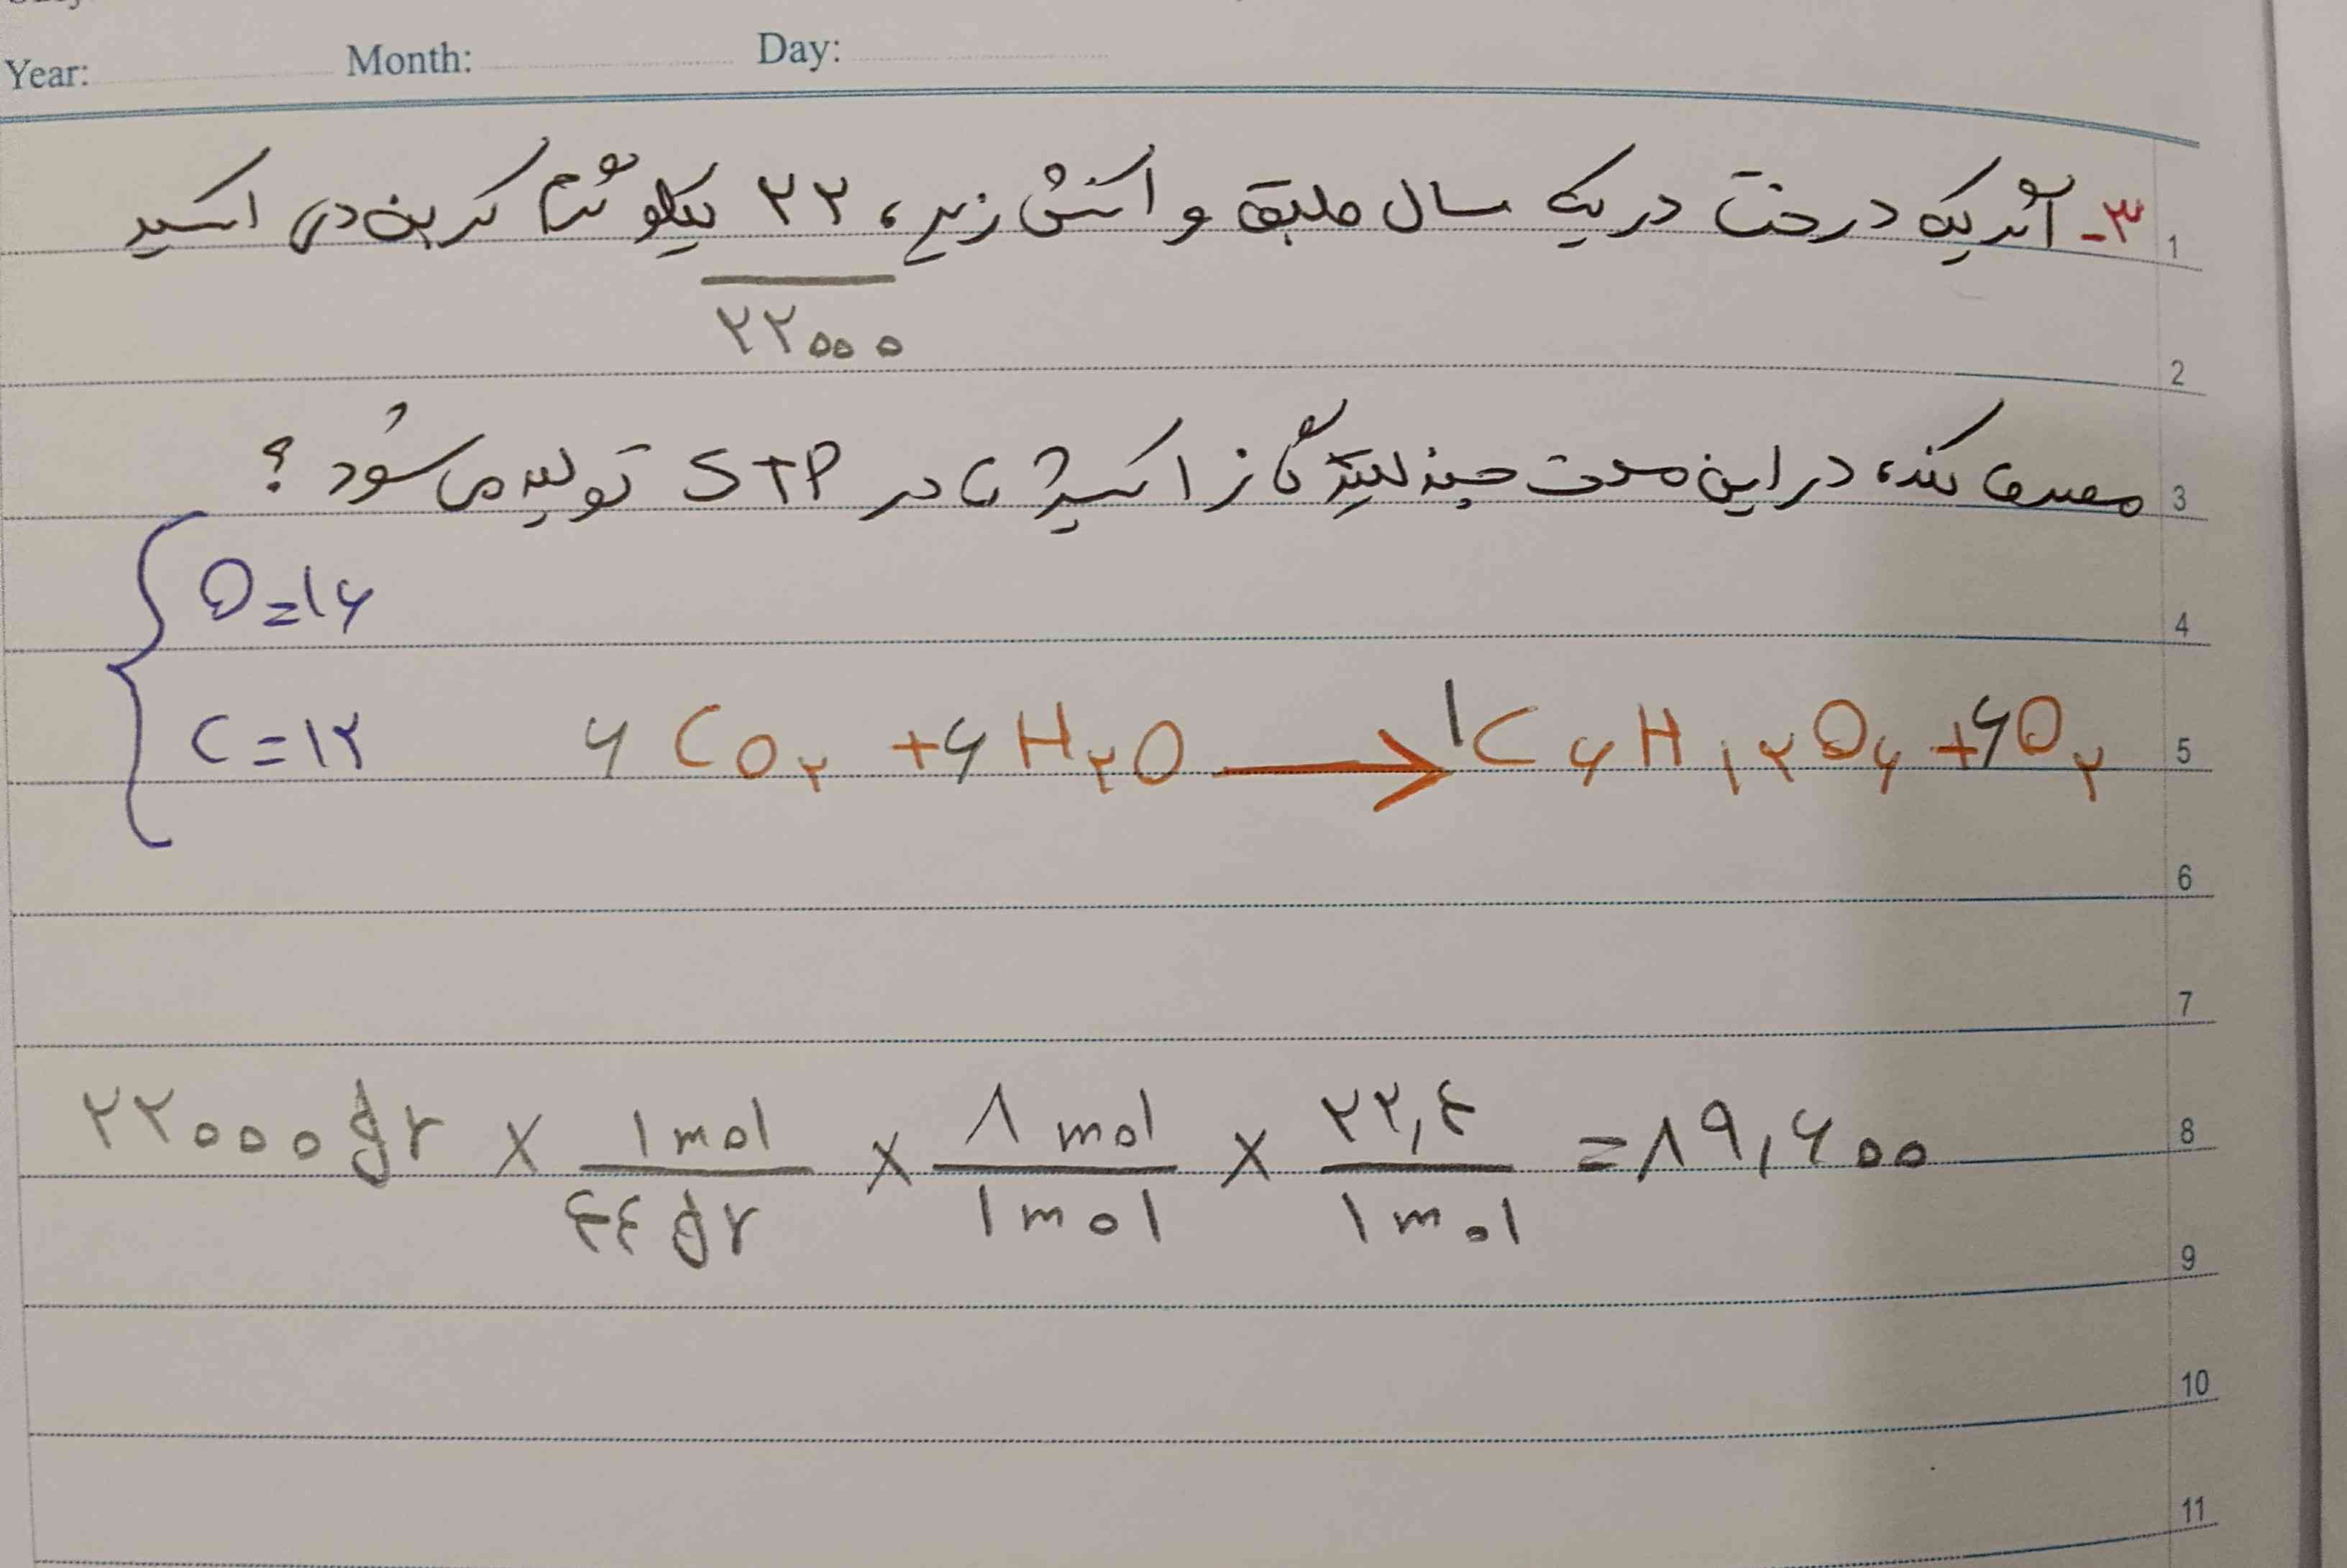 Year: Month: Day:
۳- اگر یک درخت در یک سال طبق واکنش زیر، ۲۲ کیلوگرم کربن دی اکسید
۲۲۰۰۰
مصرف کند، در این مدت چند لیتر گاز اکسیژن در STP تولید می شود ؟
O=۱۶
C=۱۲ ۶CO۲ + ۶H۲O → ۱C۶H۱۲O۶ + ۶O۲
۲۲۰۰۰gr × ۱mol/۴۴gr × ۸mol/۱mol × ۲۲,۴/۱mol = ۸۹,۶۰۰
1
2
3
4
5
6
7
8
9
10
11